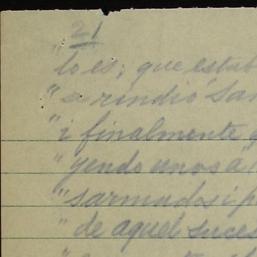 21
"lo es; que estab
"se rindió San
"i finalmente q
"yendo unos a
"sarmados i p
"de aquel suces